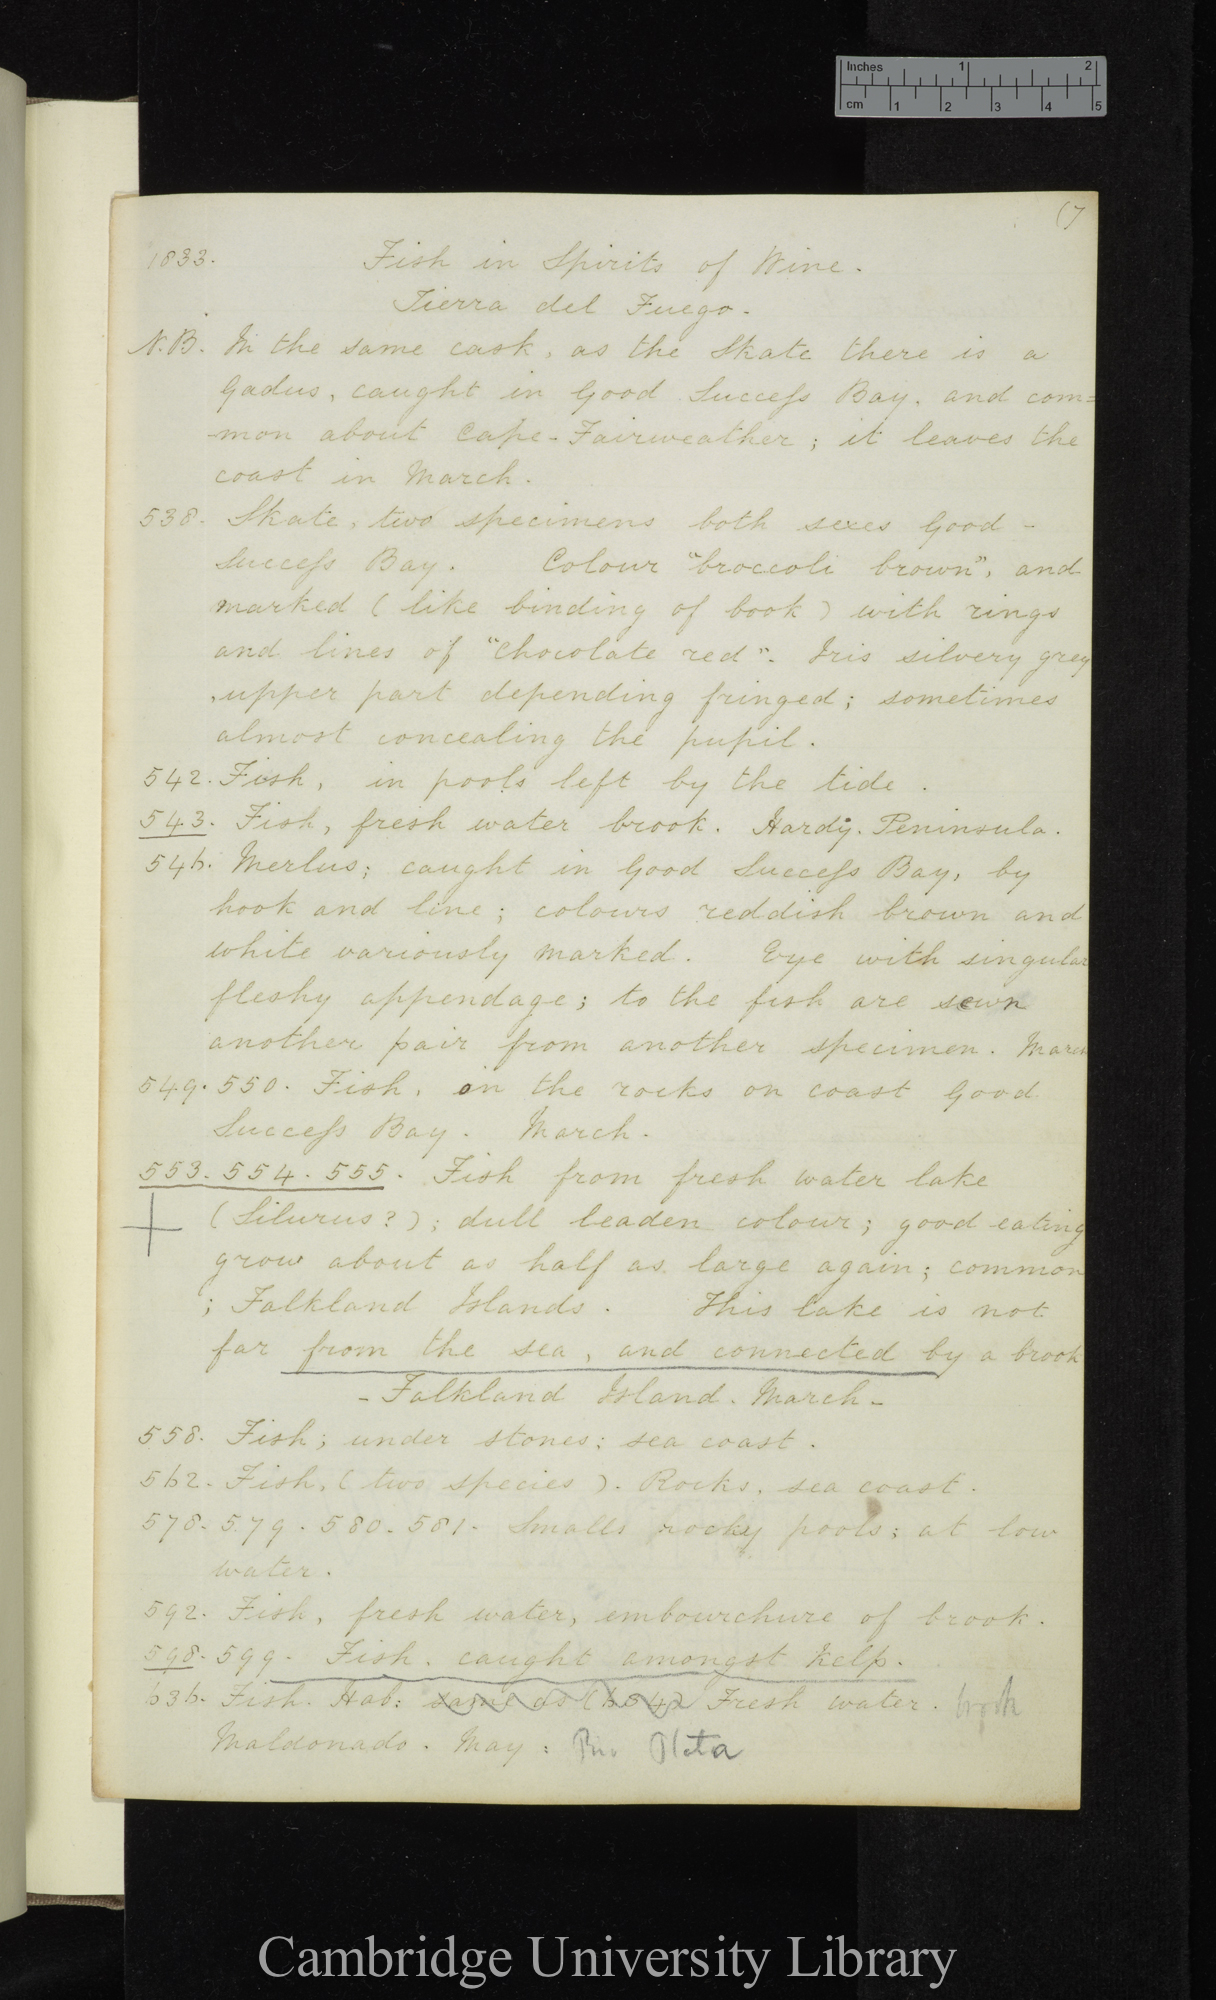 Inches 1 2
cm 1 2 3 4 5
(7
1833. Fish in Spirits of Wine.
Tierra del Fuego.
N.B. In the same cask, as the Skate there is a
Gadus, caught in Good Success Bay, and com=
-mon about Cape-Fairweather; it leaves the
coast in March.
538. Skate, two specimens both sexes Good-
Success Bay. Colour "broccoli brown", and
marked (like binding of book) with rings
and lines of "Chocolate red". Iris silvery grey
, upper part depending fringed; sometimes
almost concealing the pupil.
542. Fish, in pools left by the tide.
543. Fish, fresh water brook. Hardy. Peninsula.
546. Merlus; caught in Good Success Bay, by
hook and line; colours reddish brown and
white variously marked. Eye with singular
fleshy appendage; to the fish are sewn
another pair from another specimen. March
549. 550. Fish, on the rocks on coast Good
Success Bay. March.
553. 554. 555. Fish from fresh water lake
(Silurus?); dull leaden colour; good eating
grow about as half as large again; common
; Falkland Islands. This lake is not
far from the sea, and connected by a brook
- Falkland Island. March -
558. Fish; under stones; sea coast.
562. Fish, (two species). Rocks, sea coast.
578. 579. 580. 581. Smalls rocky pools; at low
water.
592. Fish, fresh water, embourchure of brook.
598. 599. Fish, caught amongst Kelp.
636. Fish. Hab: same as Fresh water.
Maldonado. May: Rio Plata
Cambridge University Library